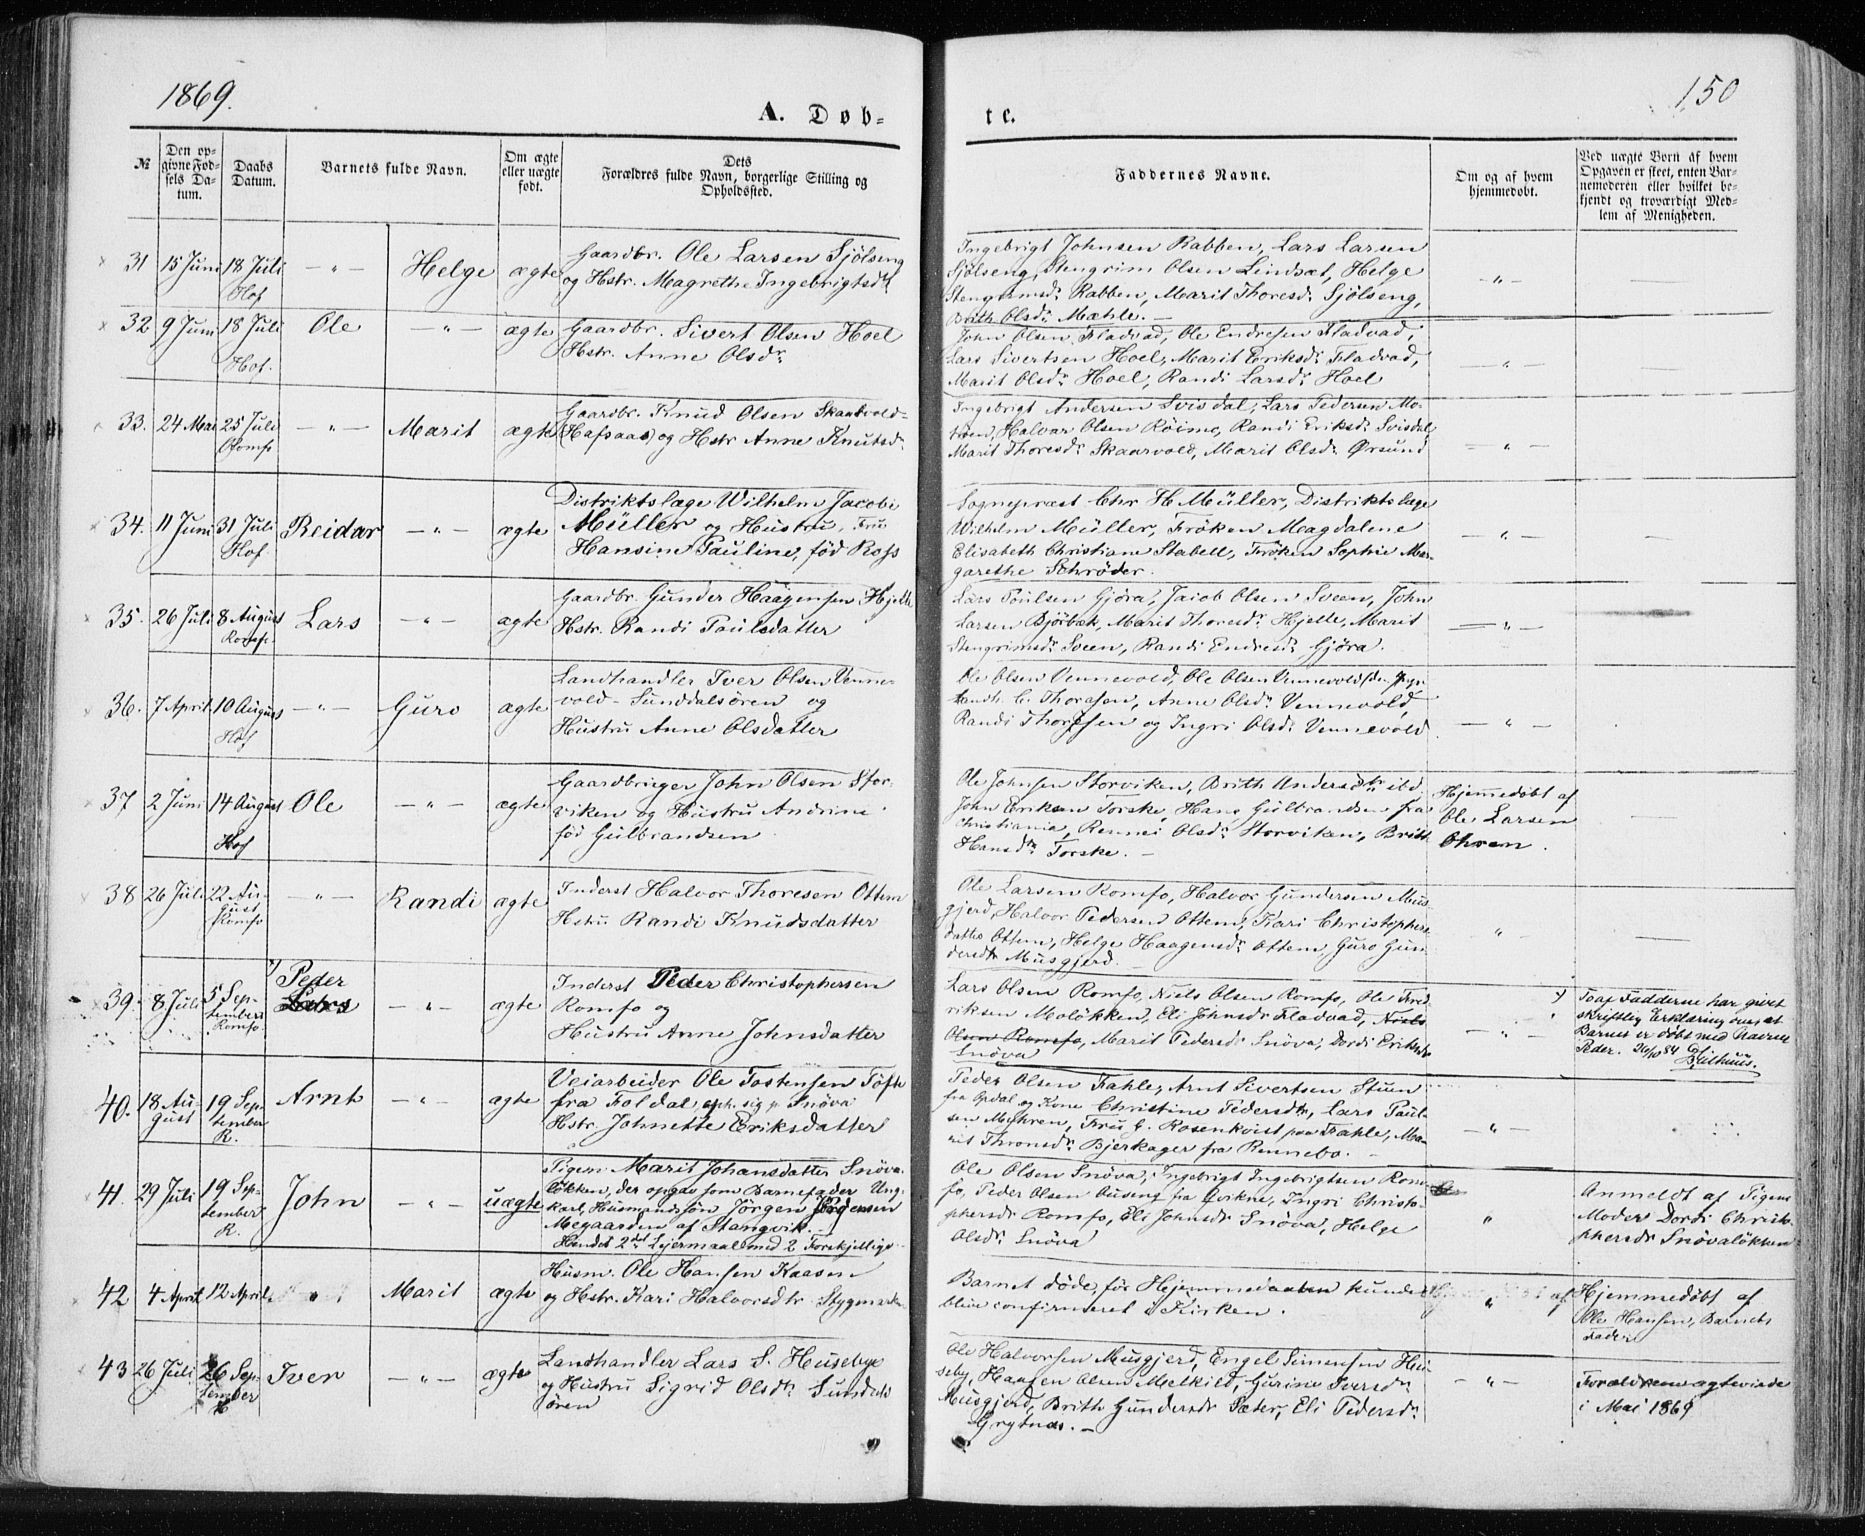 1869.
150
A. Døb-
te.
№
Den op-
givne Fød-
sels Da-
tum.
Daabs
Datum.
Barnets fulde Navn.
Om ægte
eller uægte
født.
Dets
Forældres fulde Navn, borgerlige Stilling og
Opholdssted.
Faddernes Navne.
Om og af hvem
hjemmedøbt.
Ved uægte Børn af hvem
Opgaven er skeet, enten Bar-
nemoderen eller hvilket be-
kjendt og troværdigt Med-
lem af Menigheden.
31 15 Juni 18 Juli Hof — " — Helge ægte
Gaardbr. Ole Larsen Sjölseng
og Hstr. Magrethe Ingebrigtsdr
Ingebrigt Johnsen Rabben, Lars Larsen
Sjölseng, Stengrim Olsen Lindsæt, Helge
Stengrimsdr Rabben, Marit Thoresdr Sjölseng,
Brith Olsdr Mæhle. —
— " —
32 9 Juni 18 Juli Hof. Ole — " — ægte
Gaardbr. Sivert Olsen Hoel
Hstr. Anne Olsdr
John Olsen Fladvad, Ole Endresen Fladvad,
Lars Sivertsen Hoel, Marit Eriksdr Fladvad,
Marit Olsdr Hoel, Randi Larsdr Hoel
— " —
33. 24 Mai 25 Juli Romfo — " — Marit ægte
Gaardbr. Knud Olsen Skaarvold-
(Hafsaas) og Hstr Anne Knutsdr
Ingebrigt Andersen Svisdal, Lars Pedersen Mo-
Halvar Olsen Röime, Randi Eriksdr Svisdal,
Marit Thoresdr Skaarvold, Marit Olsdr Ørsund
— " —
34. 11 Juni 31 Juli Hof Reidar — " — ægte
Distriktslæge Wilhelm Jacobi
Müller og Hustru, Fru
Hansine Pauline, död Ross
Sognepræst Chr H. Müller, Distriktslæge
Wilhelm Müller, Fröken Magdalene
Elisabeth Christiane Stabell, Fröken Sophie Mar-
garethe Schröder.
— " —
35. 26 Juli 8 August Romfo. Lars — " — ægte
Gaardbr. Gunder Haagensen Hjelle
Hstr. Randi Paulsdatter
Lars Poulsen Gjöra, Jacob Olsen Sveen, John
Larsen Bjørbæk, Marit Thoresdr Hjelle, Marit
Stengrimsdr Sveen, Randi Endresdr Gjöra.
— " —
36. 7 April 10 August Hof — " — Guro ægte
Landhandler Iver Olsen Venne-
vold - Sunddalsören og
Hustru Anne Olsdatter
Ole Olsen Vennevold, Ole Olsen Vennevold (den
Landh. C. Thoresen, Anne Olsdr Vennevold,
Randi Thoresen og Ingri Olsdr Vennevold
— " —
37 2 Juni 14 August Hof Ole — " — ægte
Gaardbruger John Olsen Stor-
viken og Hustru Andrine
föd Gulbrandsen
Ole Johnsen Storviken, Brith Andersdtr ibd.
John Eriksen Torske, Hans Gulbrandsen fra
Christiania, Rennei Olsdr Storviken, Brith
Hansdtr Torske. —
Hjemmedøbt af
Ole Larsen
Ohren.
38 26 Juli 22 Au-
gust
Romfo — " — Randi ægte
Inderst Halvor Thoresen Ottem
Hstru Randi Knudsdatter
Ole Larsen Romfo, Halvor Gundersen Mus-
gjerd, Halvor Pedersen Ottem, Kari Christophers-
datter Ottem, Helge Haagensdr Ottem, Guro Gun-
dersdtr Musgjerd. —
"
39. 8 Juli 5 Sep-
tember
Romfo. 1) Peder
Lars — " — ægte
Inderst Peder Christophersen
Romfo og
Hustru Anne Johnsdatter
Lars Olsen Romfo, Niels Olsen Romfo, Ole Fred-
riksen Moløkken, Eli Johnsdr Fladvad, Niels
Olsen Romfo, Marit Pedersdr Snöva, Dordi Eriksdr
Snöva
— " —
Toaf Fadderne har givet
skriftlig Erklæring over at
Barnet er døbt med Navne
Peder. 26/10 84
40. 18 Au-
gust 19 Sep-
tember
R. Arnt — " — ægte
Veiarbeider Ole Tostensen Tofte
fra Foldal, oph. sig p. Snöva
Hstr. Johnette Eriksdatter
Peder Olsen Fahle, Arnt Sivertsen Stuen
fra Opdal og Kone Christine Pedersdtr, Lars Paul-
sen Myhren, Fru C. Rosenkvist paa Fahle, Ma-
rit Thronsdr Bjerkager fra Rennebo. —
— " —
41. 29 Juli 19 Sep-
tember
R. John — " — uægte
Pigen Marit Johansdatter Snöva-
lökken, der opgav som Barnefader Ung-
karl, Husmandssön Jörgen Jörgensen
Megaarden af Stangvik. —
Hendes 2det Leiermaal med 2 Forskjellige.
Ole Olsen Snöva, Ingebrigt Ingebrigtsen Rom-
fo, Peder Olsen Auseng fra Qvikne, Ingri Christo-
phersdr Romfo, Eli Johnsdr Snöva, Helge
Olsdr Snöva
"
Anmeldt af Pigens
Moder Dordi Christo-
phersdr Snövalökken
42 4 April 12 April " Marit ægte
Husm. Ole Hansen Kaasen
og Hstr. Kari Halvorsdtr Stygmarken
Barnet döde för Hjemmedaaben kunde
blive confirmeret i Kirken.
"
Hjemmedøbt af
Ole Hansen, Barnets
Fader
43 26 Juli 26 Sep-
tember Iver — " — ægte
Landhandler Lars S. Husebye
og Hustru Sigrid Olsdtr Sunddals
ören
Ole Halvorsen Musgjerd, Engel Simensen Hu-
seby, Haagen Olsen Melkild, Gurine Iversdr
Musgjerd, Brith Gundersdr Sæter, Eli Pedersdr
Grytnes. —
— " —
Forældrene ægteviede
i Mai 1869